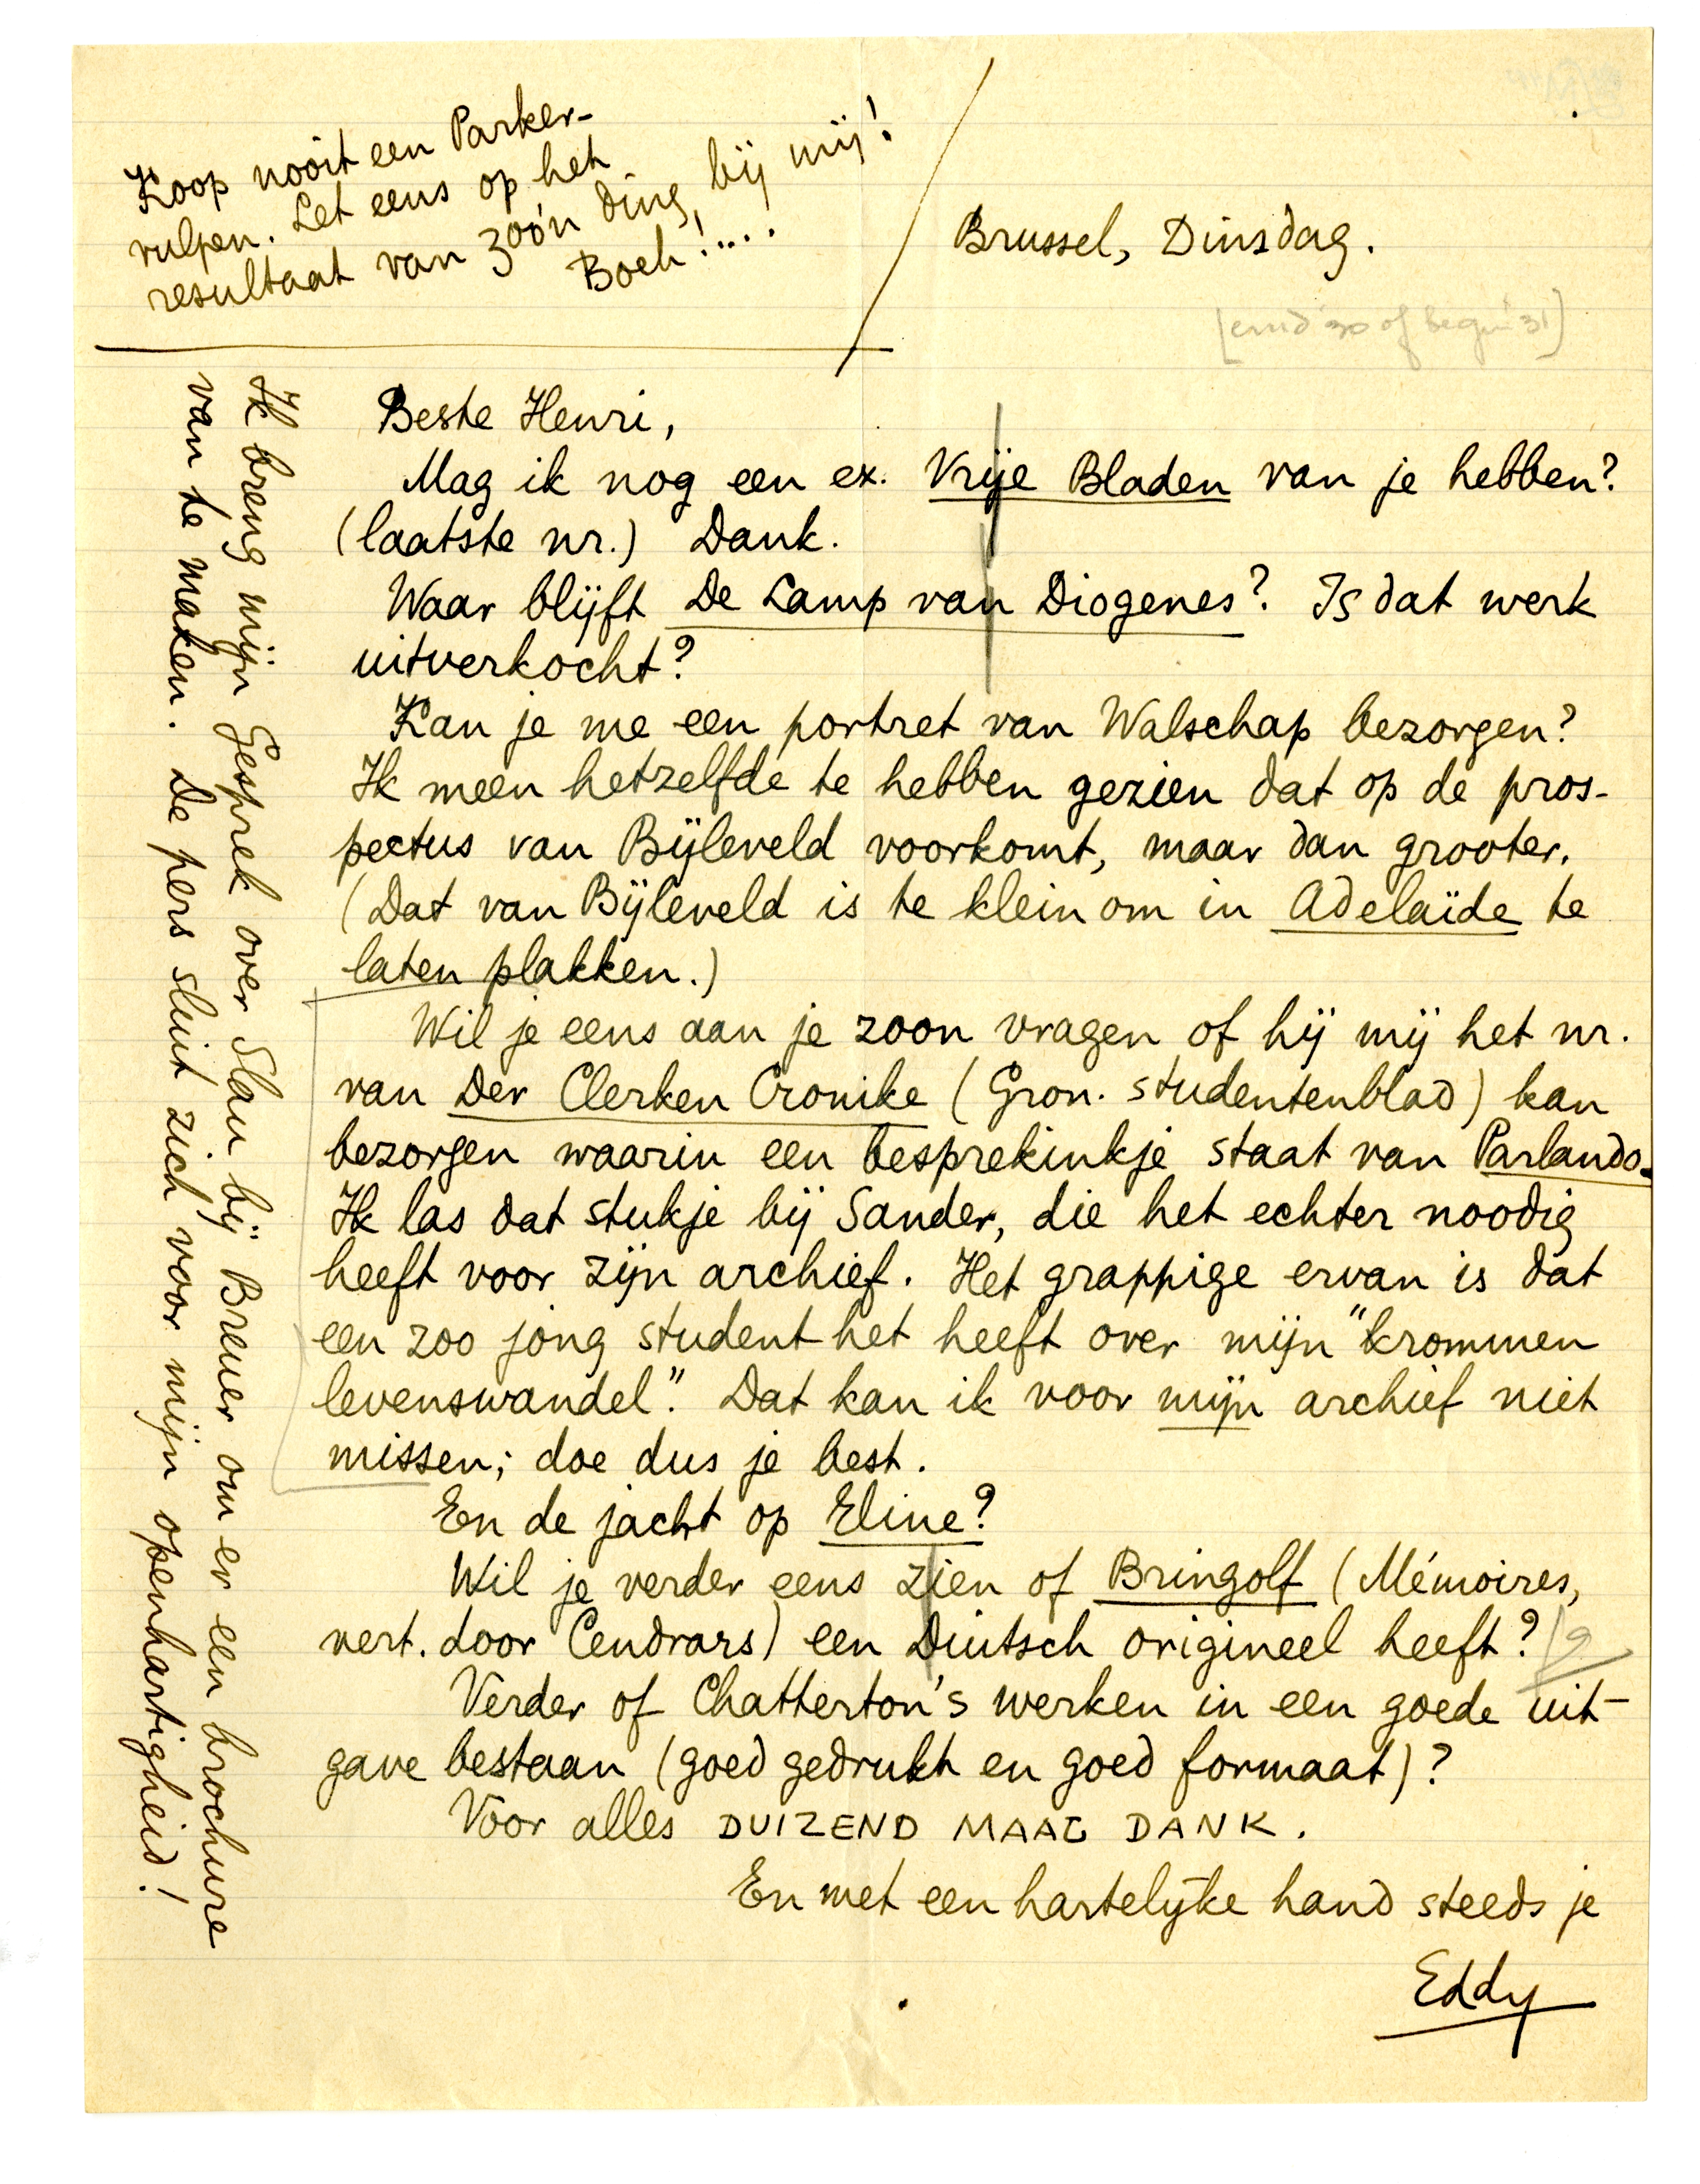 Koop nooit een Parker-
vulpen. Let eens op het
resultaat van zoo'n ding, bij mij!
Boeh!....
Brussel, Dinsdag.
[eind '30 of begin '31]
Beste Henri,
Mag ik nog een ex. Vrije Bladen van je hebben?
(laatste nr.) Dank.
Waar blijft De Lamp van Diogenes? Is dat werk
uitverkocht?
Kan je me een portret van Walschap bezorgen?
Ik meen hetzelfde te hebben gezien dat op de pros-
pectus van Bijleveld voorkomt, maar dan grooter.
(Dat van Bijleveld is te klein om in Adelaïde te
laten plakken.)
Wil je eens aan je zoon vragen of hij mij het nr.
van Der Clerken Cronike (Gron. studentenblad) kan
bezorgen waarin een besprekinkje staat van Parlando.
Ik las dat stukje bij Sander, die het echter noodig
heeft voor zijn archief. Het grappige ervan is dat
een zoo jong student het heeft over mijn "krommen
levenswandel". Dat kan ik voor mijn archief niet
missen; doe dus je best.
En de jacht op Eline?
Wil je verder eens zien of Bringolf (Mémoires,
vert. door Cendrars) een Duitsch origineel heeft?
Verder of Chatterton's werken in een goede uit-
gave bestaan (goed gedrukt en goed formaat)?
Voor alles DUIZEND MAAL DANK.
En met een hartelijke hand steeds je
Eddy
Ik breng mijn Gesprek over Slau bij Breuer om er een brochure
van te maken. De pers sluit zich voor mijn openhartigheid!